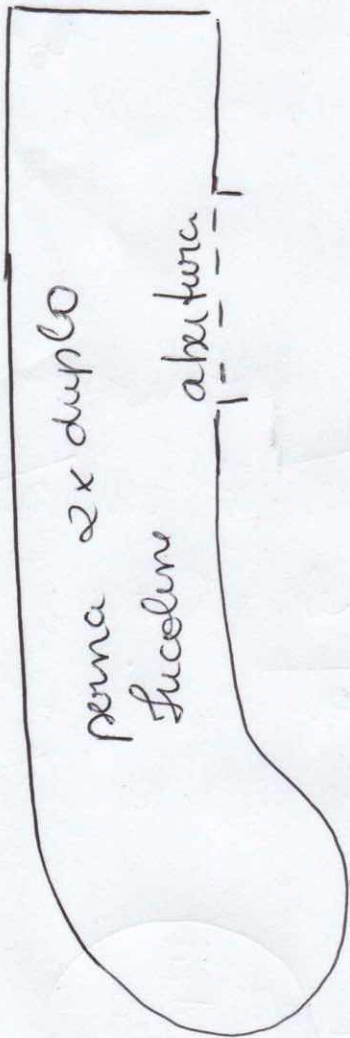 perna 2x duplo
Tricoline
abertura